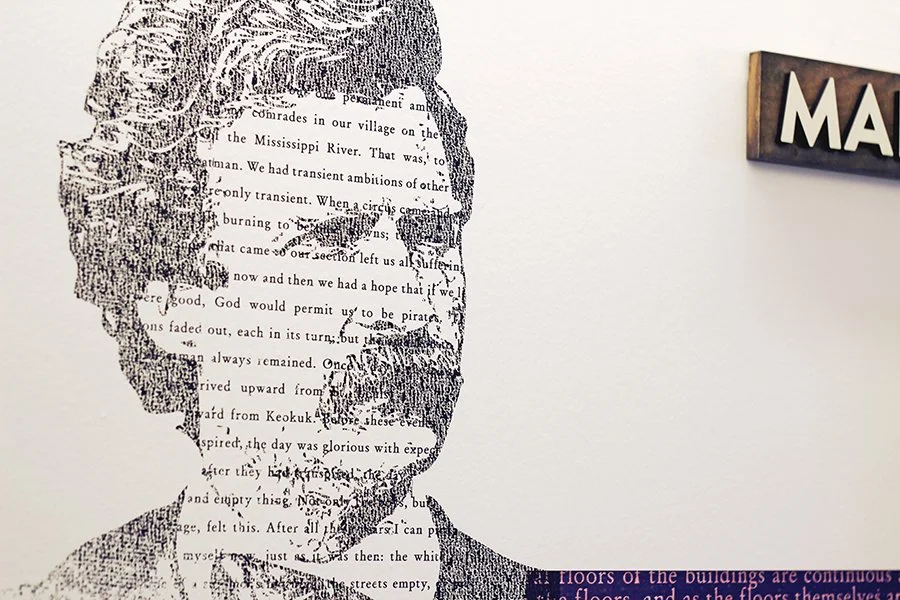 permanent
comrades in our village on the
the Mississippi River. That was, to
man. We had transient ambitions of other
only transient. When a circus came and
burning to
that came to our section left us all suffering
now and then we had a hope that if we
good, God would permit us to be pirates.
faded out, each in its turn; but
always remained. Once
upward from
from Keokuk. Before these
the day was glorious with
after they had transpired, the day
and empty thing. Not only
felt this. After all I can
myself now, just as it was then: the
the streets empty,
MA
floors of the buildings are continuous
floors, and as the floors themselves